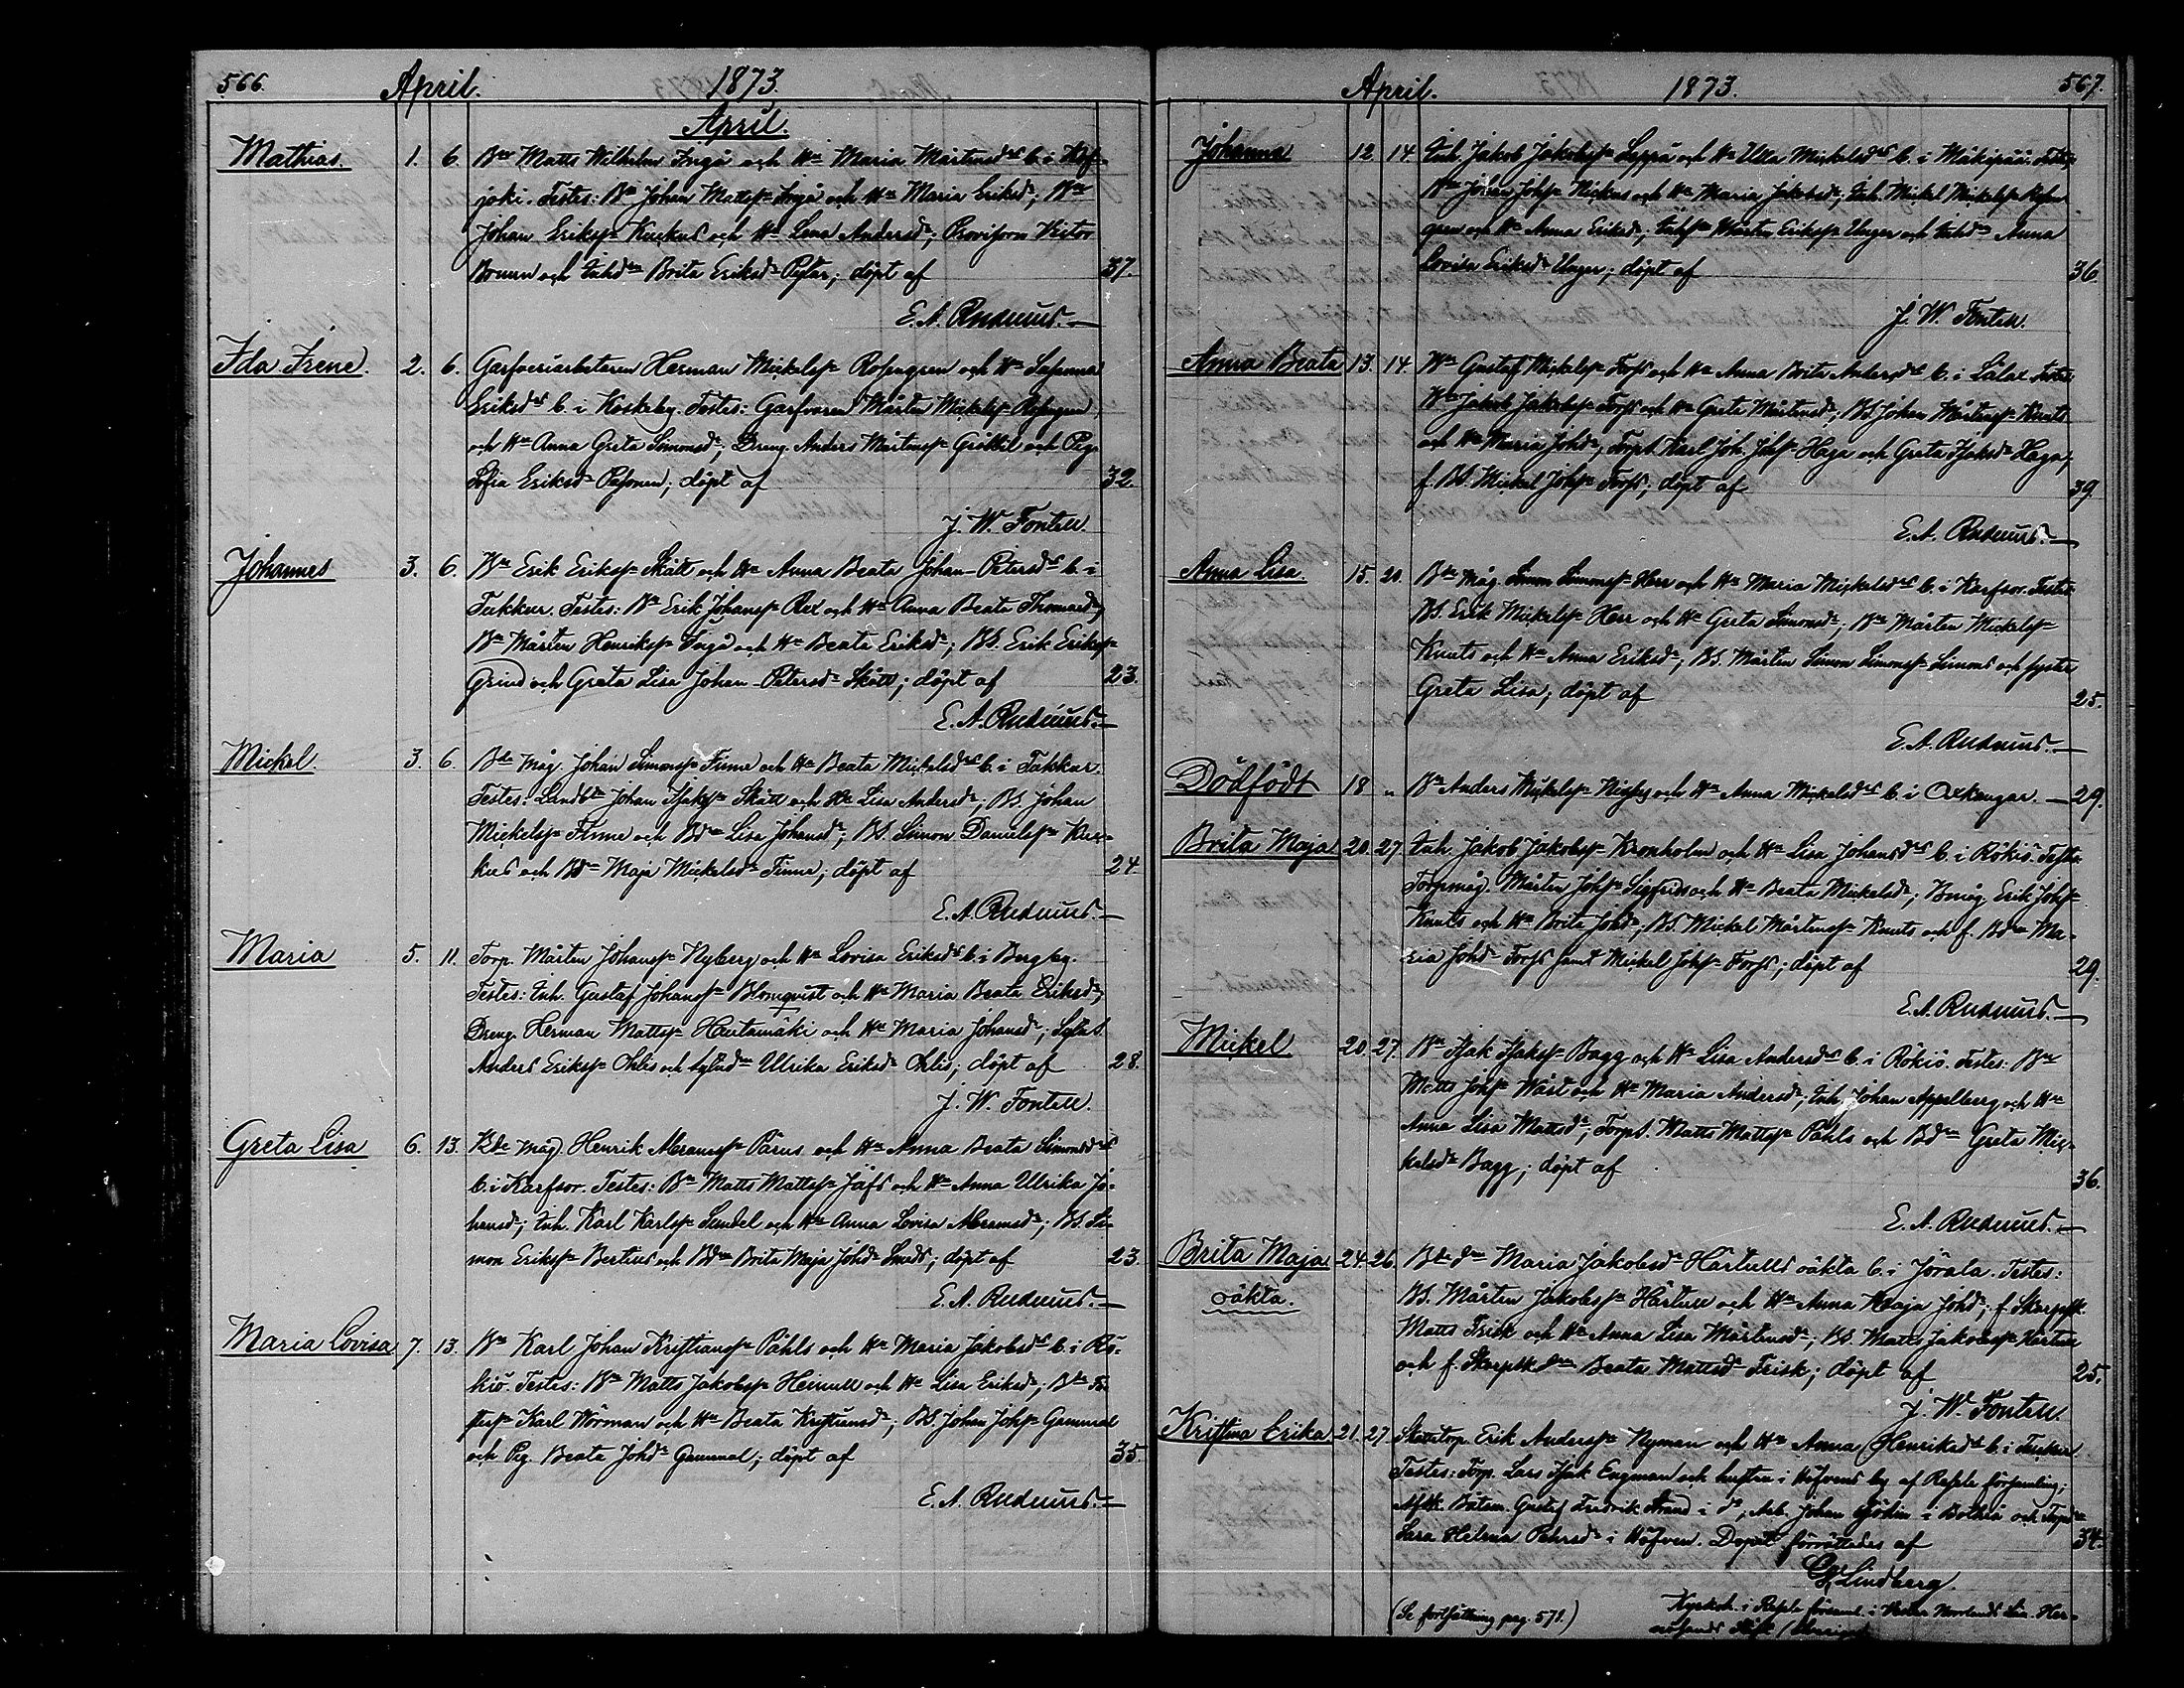 566. April. 1873.
April.
Mathias. 1. 6. Bn Matts Wilhelm Ingå och Hn Maria Mårtensdr b. i Kof-
joki. Testes: Bn Johan Mattss. Ingå och Hn Maria Eriksdr; Bn
Johan Erikss. Kuckus och Hn Lena Andersdr; Provisorn Victor
och Inhdn Brita Eriksdr; döpt af 37.
E. A. Rudnäus.
Ida Irene. 2. 6. Garfveriarbetaren Herman Mickelss. Rosengren och Hn Susanna
Eriksdr b. i Koskeby. Testes: Garfvaren Mårten Mickelss. Rosengren
och Hn Anna Greta Simonsdr; Dreng. Anders Mårtenss. Gröttil och Pig.
Sofia Eriksdr Pesonen; döpt af 32.
J. W. Fontell
Johannes 3. 6. Bn Erik Erikss. Skått och Hn Anna Beata Johan-Petersdr b. i
Tuckur. Testes: Bn Erik Johanss. Rex och Hn Anna Beata Thomasdr;
Bn Mårten Henrikss. Ingå och Hn Beata Eriksdr; BS. Erik Erikss.
Grind och Greta Lisa Johan-Petersdr Skått; döpt af 23.
E. A. Rudnäus.
Mickel 3. 6. Bde måg Johan Simonss. Finne och Hn Beata Mickelsdr b. i Tukkur.
Testes: Landbn Johan Isakss. Skått och Hn Lisa Andersdr; BS. Johan
Mickelss. Finne och Bdn Lisa Johansdr; BS. Simon Danielss. Kuc-
kus och Bdn Maja Mickelsdr Finne; döpt af 24
E. A. Rudnäus.
Maria 5. 11. Torp. Mårten Johanss. Nyberg och Hn Lovisa Eriksdr b. i Bergby.
Testes: Inh. Gustaf Johanss. Blomqvist och Hn Maria Beata Eriksdr;
Dreng. Herman Mattss. Hautamäki och Hn Maria Johansdr;
Anders Erikss. Ohlis och Ulrika Eriksdr Ohlis; döpt af 28.
J. W. Fontell.
Greta Lisa 6. 13. Bde måg Henrik Abramss. Pärus och Hn Anna Beata Simonsdr
b. i Karfsor. Testes: Bn Matts Mattss. Jåfs och Hn Anna Ulrika Jo-
hansdr; Inh. Karl Karlss. Sundel och Hn Anna Lovisa Abramsdr; BS. Si-
mon Erikss. Bertius och Bdn Brita Maja Johdr Smeds; döpt af 23.
E. A. Rudnäus.
Maria Lovisa 7. 13. Bn Karl Johan Kristianss. Påhls och Hn Maria Jakobsdr b. i Rö-
kiö. Testes: Bn Matts Jakobss. Heimull och Hn Lisa Eriksdr; Bde Fo-
sters. Karl Wörman och Hn Beata Kristiansdr; BS. Johan Johss. Gammal
och Pig. Beata Johdr Gammal; döpt af 35.
E. A. Rudnäus.
April. 1873. 567.
Johanna 12 14 Inh. Jakob Jakobss. Loppa och Hn Ulla Mickelsdr b. i Mäkipää. Testes:
Bn Johan Johss. Nickus och Hn Maria Jakobsdr; Inh. Mickel Mickelss. Rosen-
gren och Hn Anna Eriksdr; Inhs. Mårten Erikss. Unger och Inhdn Anna
Lovisa Eriksdr Unger; döpt af 36.
J. W. Fontell.
Anna Beata 13. 14. Bn Gustaf Mickelss. Forss och Hn Anna Brita Andersdr b. i Lålax. Testes:
Bn Jakob Jakobss. Forss och Hn Greta Mårtensdr; BS. Johan Mårtenss. Knuts
och Hn Maria Johdr; Torps. Karl Joh. Johss. Haga och Greta Isaksdr Haga;
f. BS. Mickel Johss. Forss; döpt af 39.
E. A. Rudnäus.
Anna Lisa. 15. 20. Bde måg Simon Simonss. Herr och Hn Maria Mickelsdr b. i Karfsor. Testes:
BS. Erik Mickelss. Herr och Hn Greta Simonsdr; Bn Mårten Mickelss.
Knuts och Hn Anna Eriksdr; BS. Mårten Simon Simonss. Simons och syster
Greta Lisa; döpt af 25.
E. A. Rudnäus.
Dödfödt 18 „ Bn Anders Mickelss. Nissas och Hn Anna Mickelsdr b. i Oxkangar. 29.
Brita Maja 20. 27 Inh. Jakob Jakobss. Kronholm och Hn Lisa Johansdr b. i Rökiö. Testes:
Torpmåg. Mårten Johss. Sigfrids och Hn Beata Mickelsdr; Bmåg. Erik Johss.
Knuts och Hn Brita Johdr; BS. Mickel Mårtenss. Knuts och f. Bdn Ma-
ria Johdr Forss samt Mickel Johss. Forss; döpt af 29.
E. A. Rudnäus.
Mickel 20. 27. Bn Isak Isakss. Bagg och Hn Lisa Andersdr b. i Rökiö. Testes: Bn
Matts Johss. Wäst och Hn Maria Andersdr; Inh. Johan Appelberg och Hn
Anna Lisa Mattsdr; Torps. Matts Mattss. Påhls och Bdn Greta Mic-
kelsdr Bagg; döpt af 36.
E. A. Rudnäus.
Brita Maja 24. 26. Bde dn Maria Jakobsdr Härtulls oäkta b. i Jörala. Testes:
oäkta. BS. Mårten Jakobss. Härtull och Hn Anna Kaja Johdr; f. Skarpsk.
Matts Frisk och Hn Anna Lisa Mårtensdr; BS. Matts Jakobss. Härtull
och f. Skarpsk.dn Beata Mattsdr Frisk; döpt af 25.
J. W. Fontell.
Kristina Erika 21. 27. Skattetorp. Erik Anderss. Nyman och Hn Anna Henriksdr b. i Tuckur.
Testes: Torp. Lars Isak Engman och hustru i Höfvens by af Resele församling;
Afsk. Båtsm. Gustaf Fredrik Strand i do, Arb. Johan Sjödin i Bölheå och
Sara Helena Pehrsdr i Höfven. Dopet förrättades af 34.
Lindberg.
(Se fortsättning pag. 571.) Kyrkoh. i Resele församl. i Wester Norrlands Län. Her-
nösands Stift